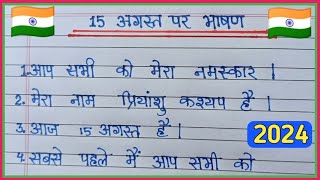 15 अगस्त पर भाषण
1. आप सभी को मेरा नमस्कार ।
2. मेरा नाम प्रियांशु कश्यप है ।
3. आज 15 अगस्त है ।
2024
4. सबसे पहले मैं आप सभी को